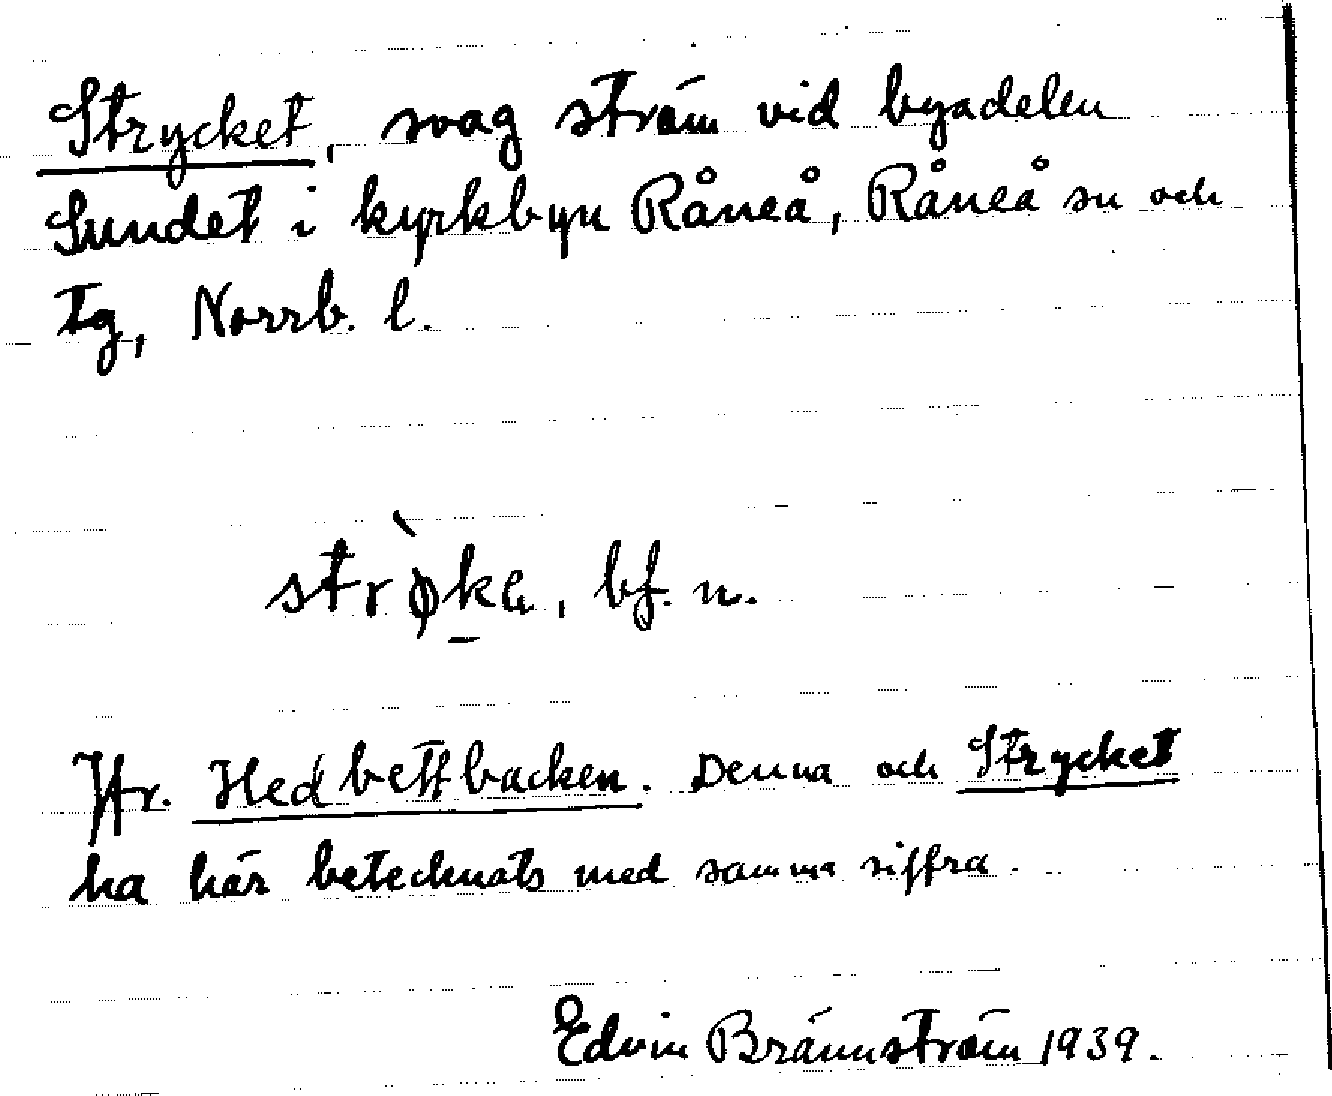 Strycket, svag ström vid byadelen
Sundet i kyrkbyn Råneå, Råneå sn och
tg, Norrb. l.
strø̀ke, bf. n.
Jfr. Hedbettbacken. Denna och Strycket
ha här betecknats med samma siffra.
Edvin Brännström 1939.